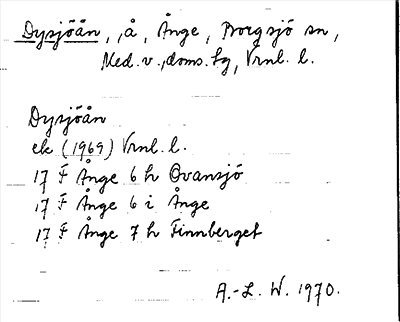 Dysjöån, å, Ånge, Borgsjö sn,
Med. v., doms. hg, Vrnl. l.
Dysjöån
ek (1969) Vrnl. l.
17 F Ånge 6 h Ovansjö
17 F Ånge 6 i Ånge
17 F Ånge 7 h Finnberget
A.-L. W. 1970.